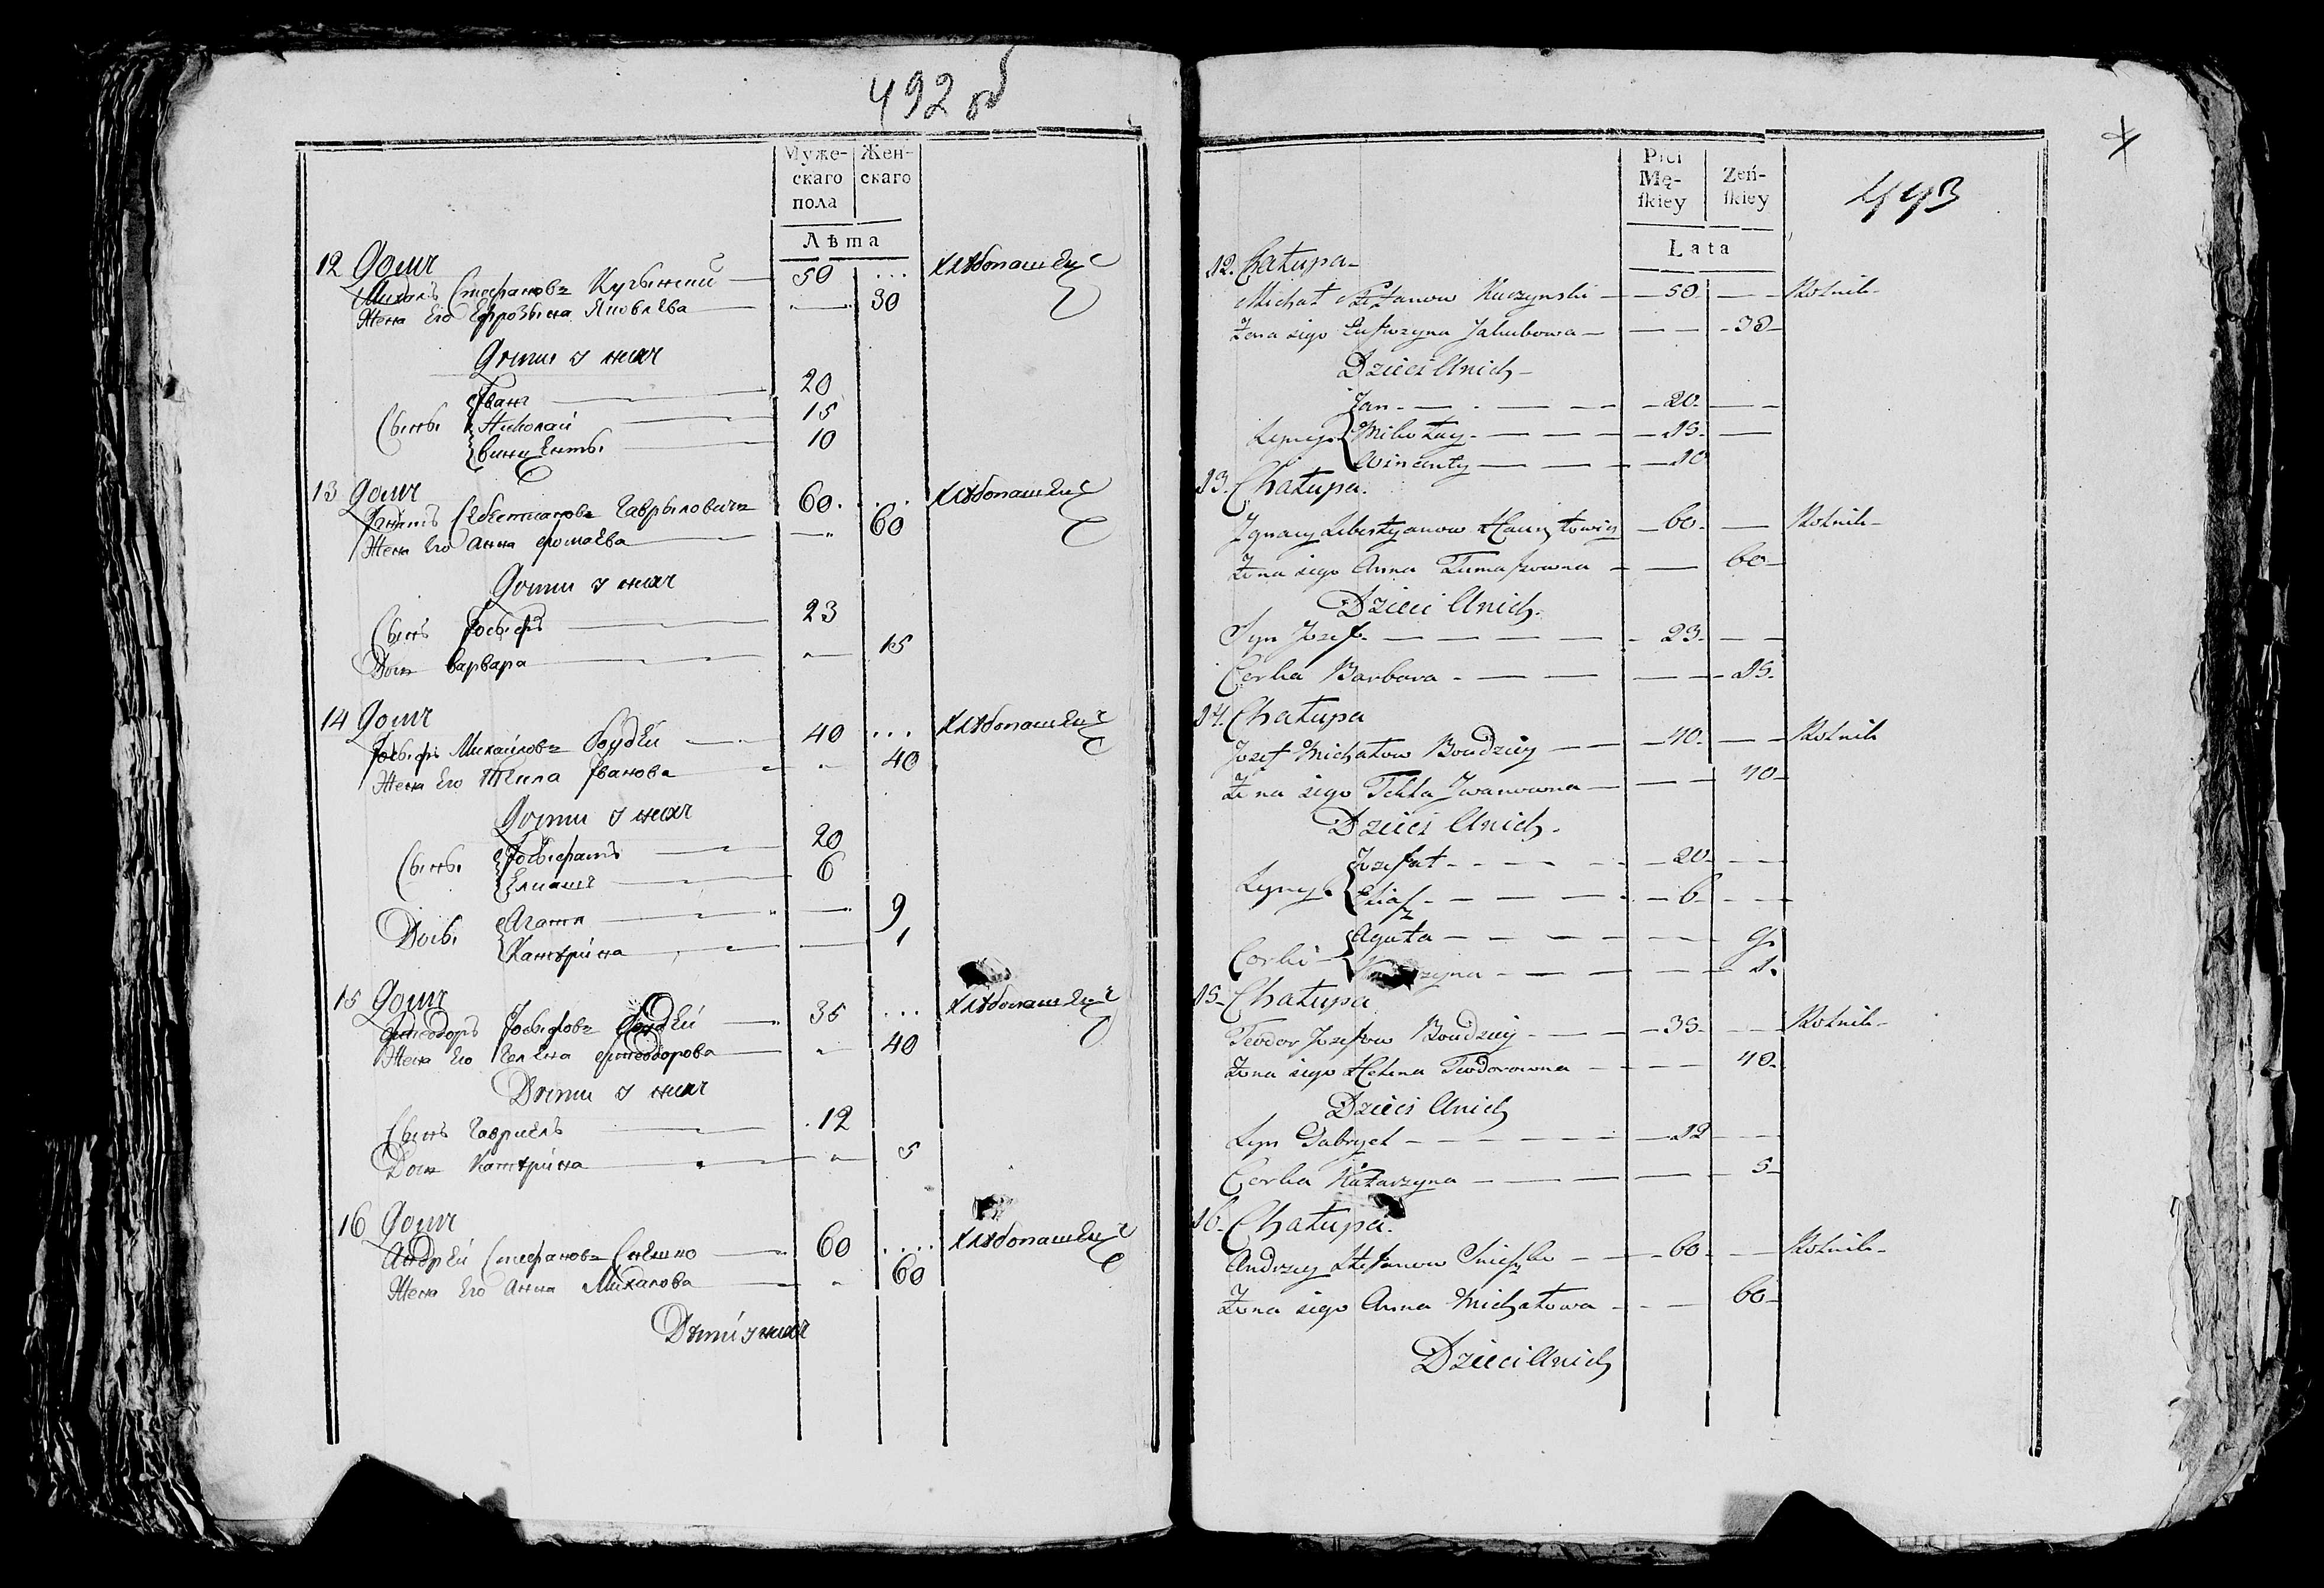 492 об
Муже-
скаго
пола
Жен-
скаго
Лѣта
12 Домъ
Михалъ Стефановъ Кучынский 50 ... хлѣбопашец
Жена Его Ефрозына Яковлева 30
Дѣти у нихъ
Сыны Іванъ 20
Николай 15
Винценты 10
13 Домъ
Ігнатъ Себестіановъ Гаврыловичъ 60. ... хлѣбопашец
Жена Его Анна Фомаева 60
Дѣти у нихъ
Сынъ Іосыфъ 23
Доч Варвара 15
14 Домъ
Іосыфъ Михайловъ 40 ... хлѣбопашец
Жена Его Текла Іванова 40
Дѣти у нихъ
Сыны Іосыфатъ 20
Еліашъ 6
Дочы Агата 9
Катѣрина 1
15 Домъ
Фтеодоръ Іосыфовъ 35 ... хлѣбопашец
Жена Его Гелена Фтеодорова 40
Дѣти у нихъ
Сынъ Гавриелъ 12
Доч Катѣрина 5
16 Домъ
Андрей Стефановъ Снешко 60 .... хлѣбопашец
Жена Его Анна Михалова 60
Дѣти у нихъ
Płci
Mę-
ſkiey
Żeń-
ſkiey
493
Lata
12. Chałupa
Michał Stefanow Kuczynski 50 Rolnik
Zona iego Eufrozyna Jakubowa 30
Dzieci Unich
Jan 20
Syney Mikołay 15
Wincenty 10
13. Chałupa.
Ignacy Sebestyanow 60 Rolnik
Zona iego Anna Tumaſzowna 60
Dzieci Unich.
Syn Jozef 23
Corka Barbara 15
14. Chałupa
Jozef Michałow Boudziey 40 Rolnik
Zona iego Tekla Jwanowna 40
Dzieci Unich.
Syney Jozefat 20
Eliaſz 6
Corki Agata 9
1
15. Chałupa
Teodor Jozefow Boudziey 35 Rolnik
Zona iego Helena Teodorowna 40
Dzieci Unich
Syn Gabryel 12
Corka Katarzyna 5
16. Chałupa.
Andrzey Stefanow Snieſzko 60 Rolnik
Zona iego Anna Michałowa 60
Dzieci Unich